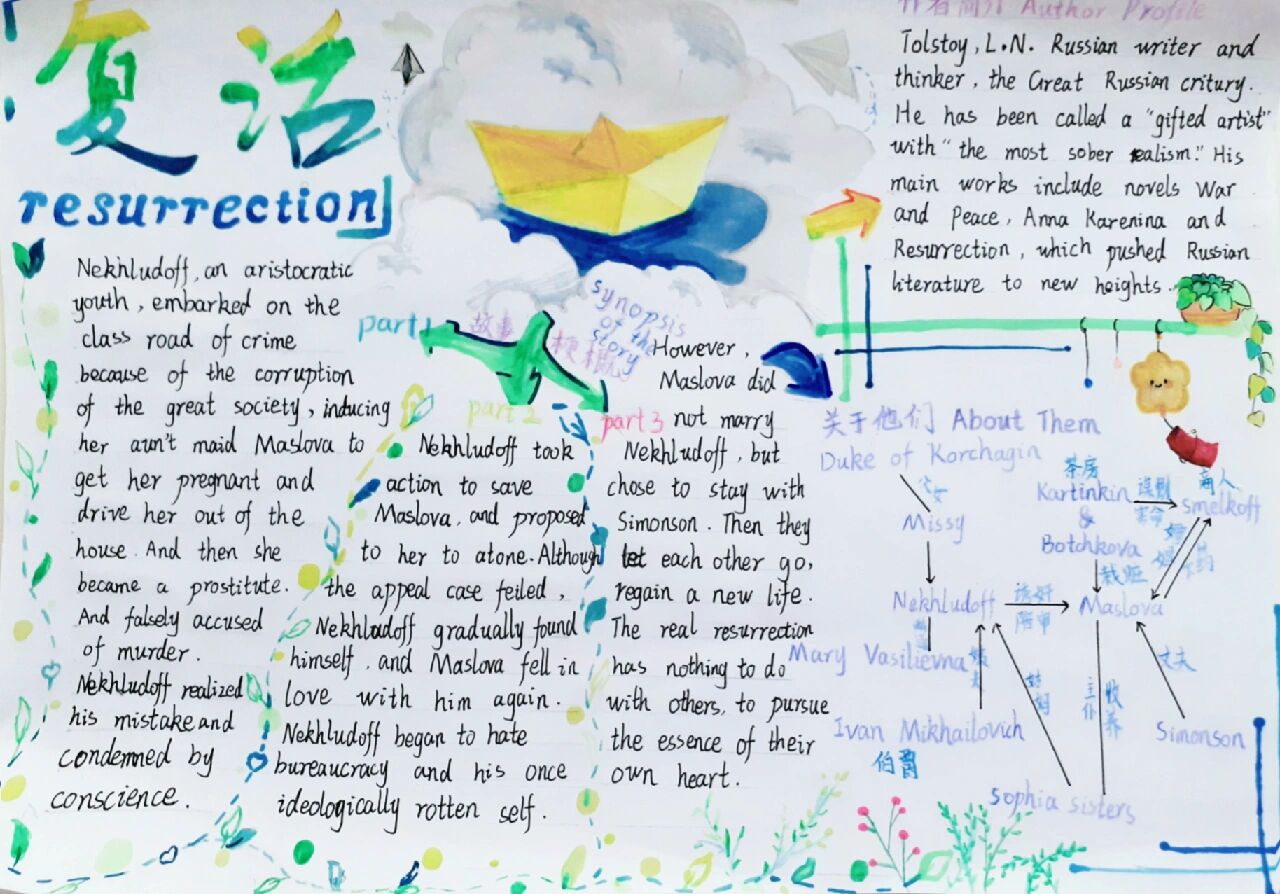 复活
resurrection
作者简介 Author Profile
Tolstoy, L.N. Russian writer and
thinker, the Great Russian critury.
He has been called a "gifted artist"
with "the most sober realism." His
main works include novels War
and Peace, Anna Karenina and
Resurrection, which pushed Russian
literature to new heights.
synopsis
of the
story
故事
梗概
part 1
Nekhludoff, an aristocratic
youth, embarked on the
class road of crime
because of the corruption
of the great society, inducing
her aun't maid Maslova to
get her pregnant and
drive her out of the
house. And then she
became a prostitute.
And falsely accused
of murder.
Nekhludoff realized
his mistake and
condemned by
conscience.
part 2
Nekhludoff took
action to save
Maslova, and proposed
to her to atone. Although
the appeal case feiled,
Nekhludoff gradually found
himself, and Maslova fell in
love with him again.
Nekhludoff began to hate
bureaucracy and his once
ideologically rotten self.
part 3
However,
Maslova did
not marry
Nekhludoff, but
chose to stay with
Simonson. Then they
let each other go,
regain a new life.
The real resurrection
has nothing to do
with others, to pursue
the essence of their
own heart.
关于他们 About Them
Duke of Korchagin
父女
Missy
茶房
Kartinkin
&
Botchkova
谋财
害命
商人
smelkoff
栽赃
Nekhludoff
诱奸
陪审
Maslova
Mary Vasilievna
Ivan Mikhailovich
伯爵
姑妈
主仆
收养
丈夫
Simonson
Sophia sisters